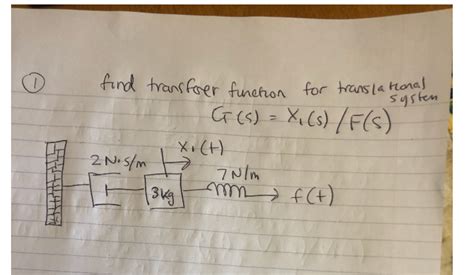 1
find transfoer function for translational
system
G(s) = X₁(s) / F(s)
X₁(t)
2 N·s/m
7 N/m
3kg
f(t)